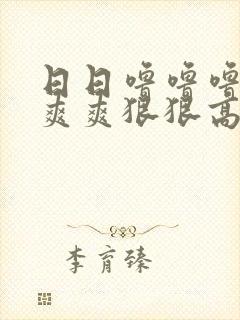 日日噜噜噜
爽爽狠狠高
李育臻